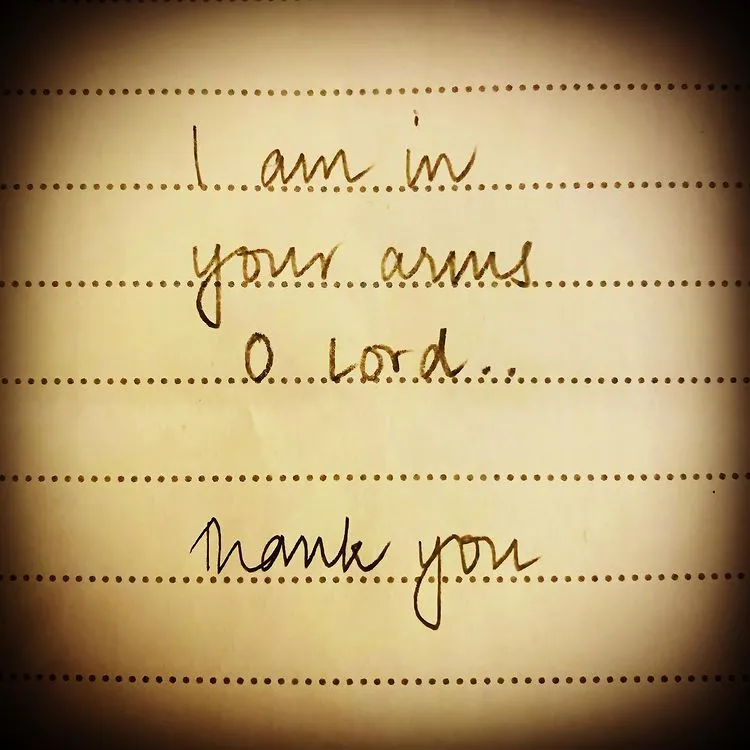 I am in
your arms
O Lord..
Thank you